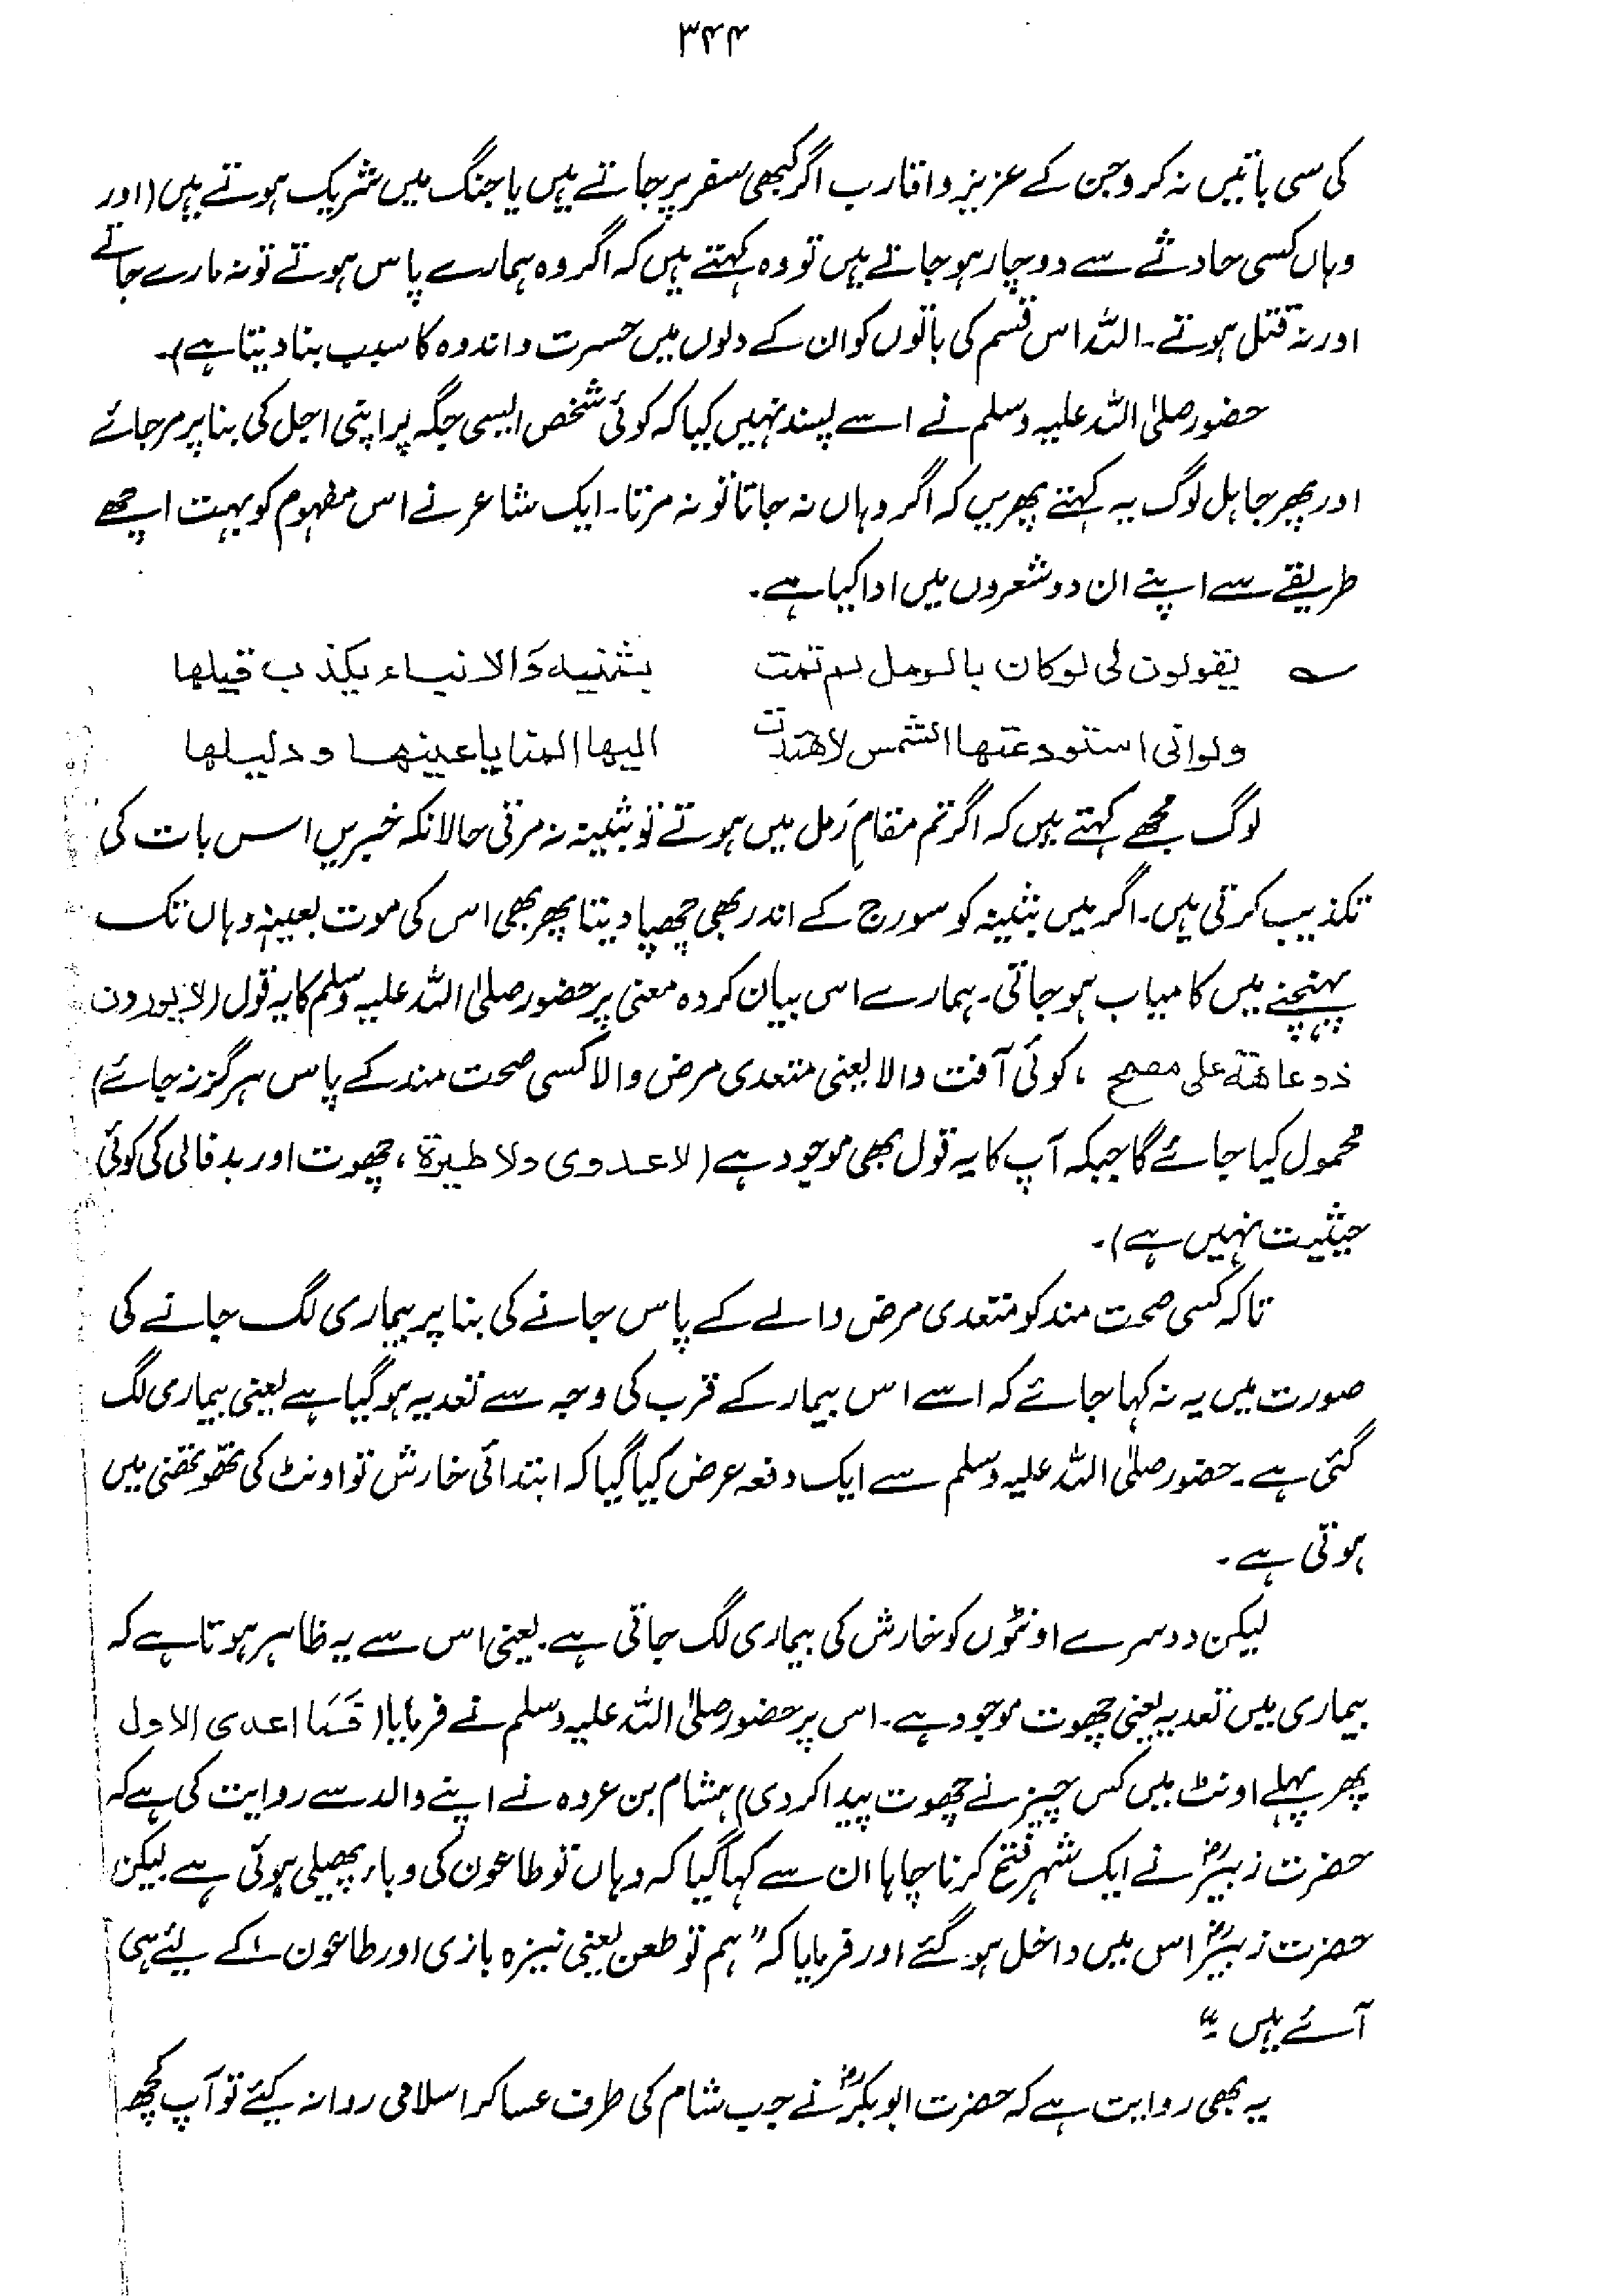 ۳۴۴
کی سی باتیں نہ کرو جن کے عزیز و اقارب اگر کبھی سفر پر جاتے ہیں یا جنگ میں شریک ہوتے ہیں (اور
وہاں کسی حادثے سے دوچار ہو جاتے ہیں تو وہ کہتے ہیں کہ اگر وہ ہمارے پاس ہوتے تو نہ مارے جاتے
اور نہ قتل ہوتے۔ اللہ اس قسم کی باتوں کو ان کے دلوں میں حسرت و اندوہ کا سبب بنا دیتا ہے)۔
حضور صلی اللہ علیہ وسلم نے اسے پسند نہیں کیا کہ کوئی شخص ایسی جگہ پر اپنی اجل کی بنا پر مر جائے
اور پھر جاہل لوگ یہ کہتے پھریں کہ اگر وہاں نہ جاتا تو نہ مرتا۔ ایک شاعر نے اس مفہوم کو بہت اچھے
طریقے سے اپنے ان دو شعروں میں ادا کیا ہے۔
؎ یقولون لی لو کان بالرمل لم تمت بثنیه وَالانباء یکذب قیلها
ولو انی استودعتها الشمس لاهتدت الیها المنایا عینها و دلیلها
لوگ مجھے کہتے ہیں کہ اگر تم مقامِ رَمل میں ہوتے تو بثینہ نہ مرتی حالانکہ خبریں اس بات کی
تکذیب کرتی ہیں۔ اگر میں بثینہ کو سورج کے اندر بھی چھپا دیتا پھر بھی اس کی موت بعینہٖ وہاں تک
پہنچنے میں کامیاب ہو جاتی۔ ہمارے اس بیان کردہ معنی پر حضور صلی اللہ علیہ وسلم کا یہ قول (لا یوردن
ذو عاهة علی مصح، کوئی آفت والا یعنی متعدی مرض والا کسی صحت مند کے پاس ہرگز نہ جائے)
محمول کیا جائے گا جبکہ آپ کا یہ قول بھی موجود ہے (لا عدوی ولا طیرة، چھوت اور بدفالی کی کوئی
حیثیت نہیں ہے)۔
تاکہ کسی صحت مند کو متعدی مرض والے کے پاس جانے کی بنا پر بیماری لگ جانے کی
صورت میں یہ نہ کہا جائے کہ اسے اس بیمار کے قرب کی وجہ سے تعدیہ ہو گیا ہے یعنی بیماری لگ
گئی ہے۔ حضور صلی اللہ علیہ وسلم سے ایک دفعہ عرض کیا گیا کہ ابتدائی خارش تو اونٹ کی تھوتھنی میں
ہوتی ہے۔
لیکن دوسرے اونٹوں کو خارش کی بیماری لگ جاتی ہے۔ یعنی اس سے یہ ظاہر ہوتا ہے کہ
بیماری میں تعدیہ یعنی چھوت موجود ہے۔ اس پر حضور صلی اللہ علیہ وسلم نے فرمایا (فَمَا اعدی الاول
پھر پہلے اونٹ میں کس چیز نے چھوت پیدا کر دی) ہشام بن عروہ نے اپنے والد سے روایت کی ہے کہ
حضرت زبیرؓ نے ایک شہر فتح کرنا چاہا ان سے کہا گیا کہ وہاں تو طاعون کی وباء پھیلی ہوئی ہے لیکن
حضرت زبیرؓ اس میں داخل ہو گئے اور فرمایا کہ "ہم تو طعن یعنی نیزہ بازی اور طاعون کے لیئے ہی
آئے ہیں۔"
یہ بھی روایت ہے کہ حضرت ابوبکرؓ نے جب شام کی طرف عساکر اسلامی روانہ کیئے تو آپ کچھ